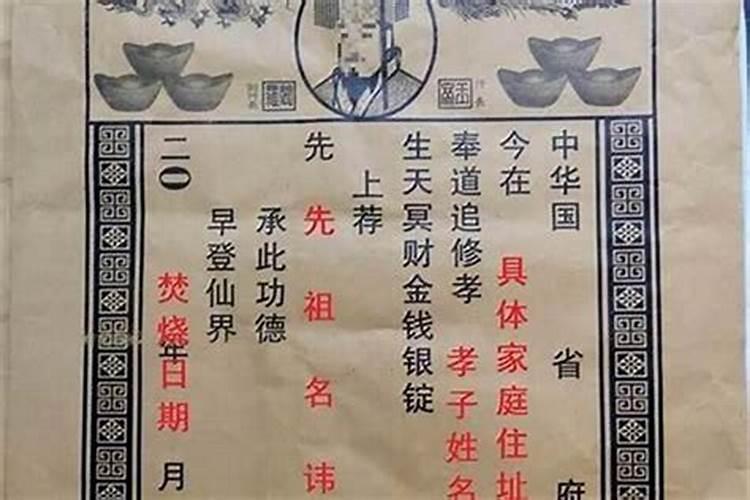 中华国 省 府
今在 具体家庭住址
奉道追修孝 孝子姓名
生天冥财金钱银锭
上荐
先 先祖名讳
承此功德
早登仙界
二0 年 焚烧日期 月